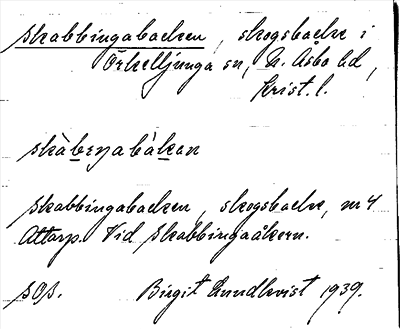 Skabbingabacken, skogsbacke i
Örkelljunga sn, N. Åsbo hd,
Krist. l.
skàbeŋa bàkan
Skabbingabacken, skogsbacke, nr 4
Attarp. Vid Skabbingaåkern.
SOS. Birgit Lundkvist 1939.